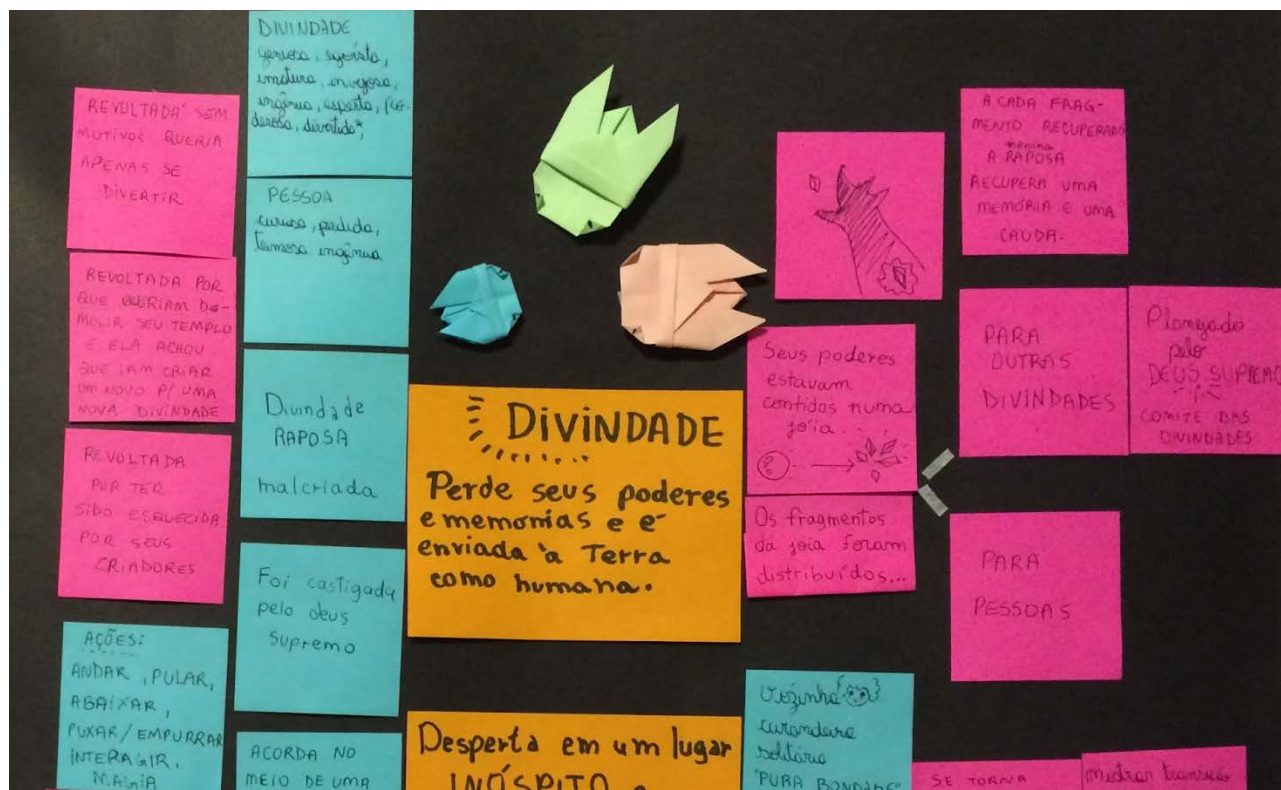 "REVOLTADA" SEM
MOTIVOS QUERIA
APENAS SE
DIVERTIR
REVOLTADA POR
QUE QUERIAM DE-
MOLIR SEU TEMPLO
E ELA ACHOU
QUE IAM CRIAR
UM NOVO P/ UMA
NOVA DIVINDADE
REVOLTADA
POR TER
SIDO ESQUECIDA
POR SEUS
CRIADORES
AÇÕES:
ANDAR, PULAR,
ABAIXAR,
PUXAR/EMPURRAR
INTERAGIR,
MAGIA
DIVINDADE
geniosa, egoísta,
imatura, invejosa,
ingênua, esperta, po-
derosa, divertida*,
PESSOA
curiosa, perdida,
teimosa ingênua
Divindade
RAPOSA
malcriada
Foi castigada
pelo deus
supremo
ACORDA NO
MEIO DE UMA
DIVINDADE
Perde seus poderes
e memórias e é
enviada à Terra
como humana.
Desperta em um lugar
INÓSPITO e
Seus poderes
estavam
contidos numa
joia...
?
Os fragmentos
da joia foram
distribuídos...
Vozinha
curandeira
solitária
"PURA BONDADE"
A CADA FRAG-
MENTO RECUPERADO
menina
A RAPOSA
RECUPERA UMA
MEMÓRIA E UMA
CAUDA.
PARA
OUTRAS
DIVINDADES
Planejado
pelo
DEUS SUPREMO
COMITE DAS
DIVINDADES
PARA
PESSOAS
SE TORNA
mostrar transição